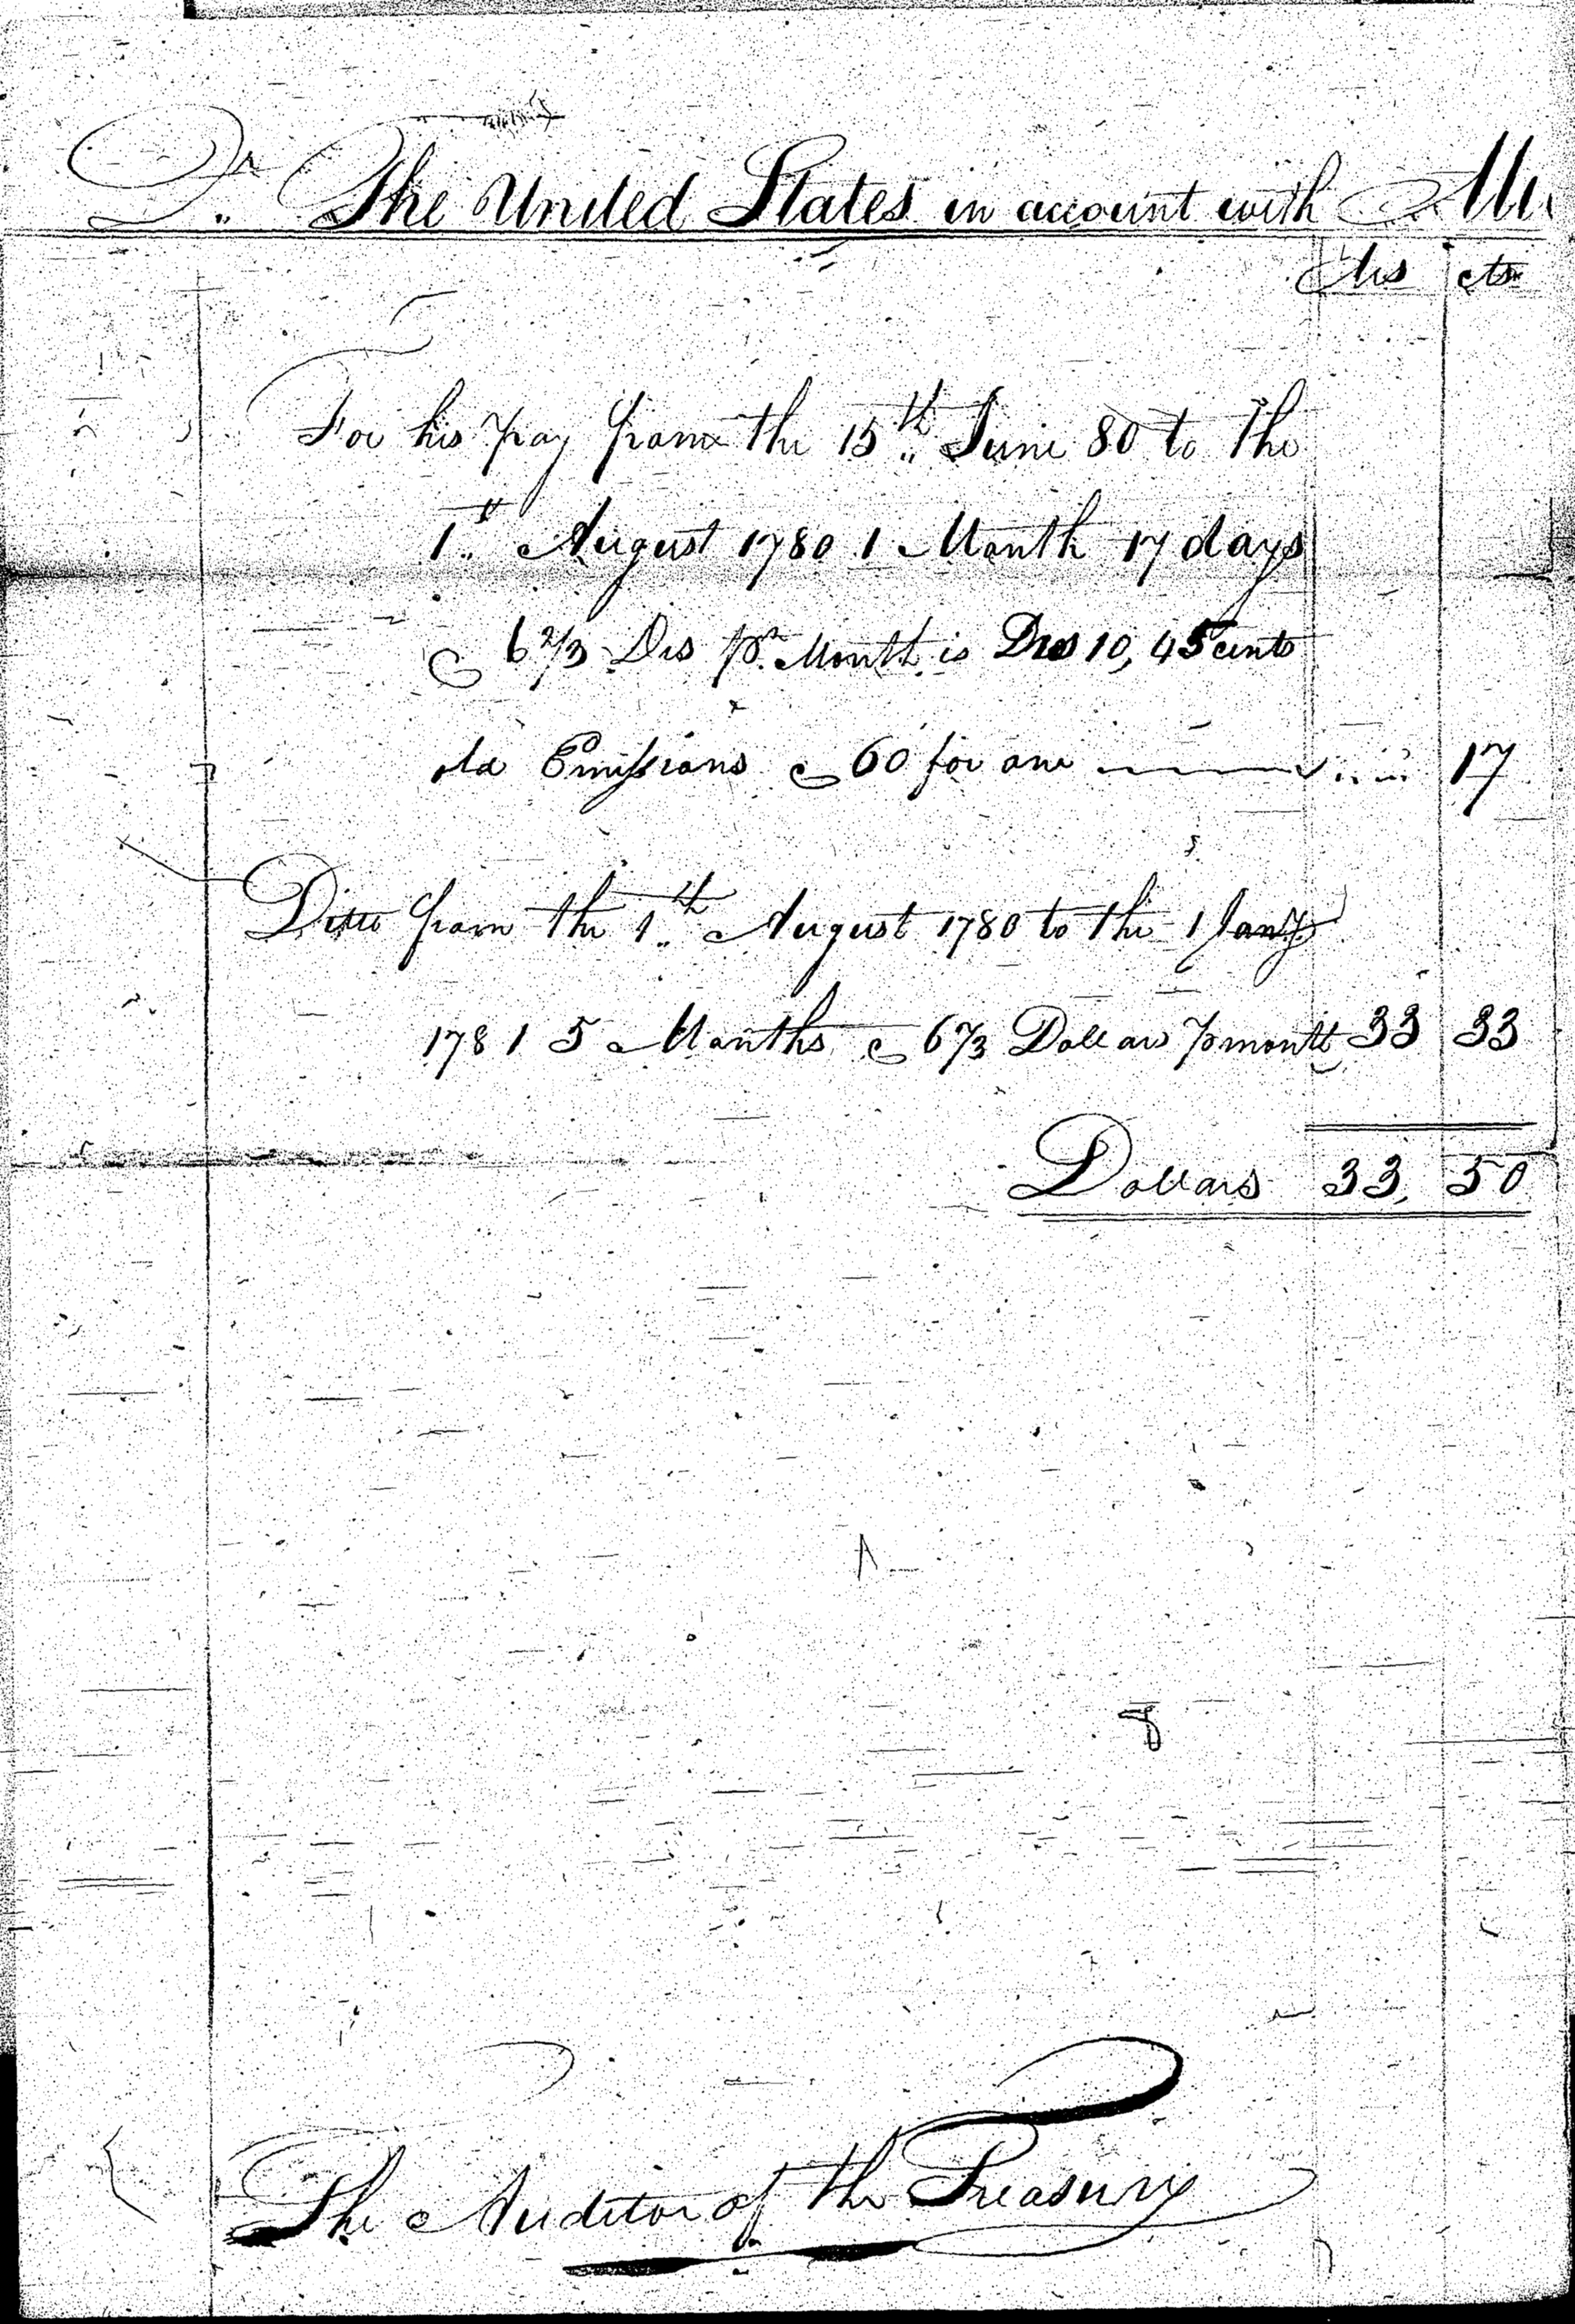 Dr. The United States in account with
Drs cts
For his pay from the 15th June 80 to the
1st August 1780 1 Month 17 days
@ 6 2/3 Drs pr. Month is Drs 10, 45 cents
old Emissions @ 60 for one 17
Ditto from the 1th August 1780 to the 1 Jany
1781 5 Months @ 6 2/3 Dollars p month 33 33
Dollars 33, 50
The Auditor of the Treasury